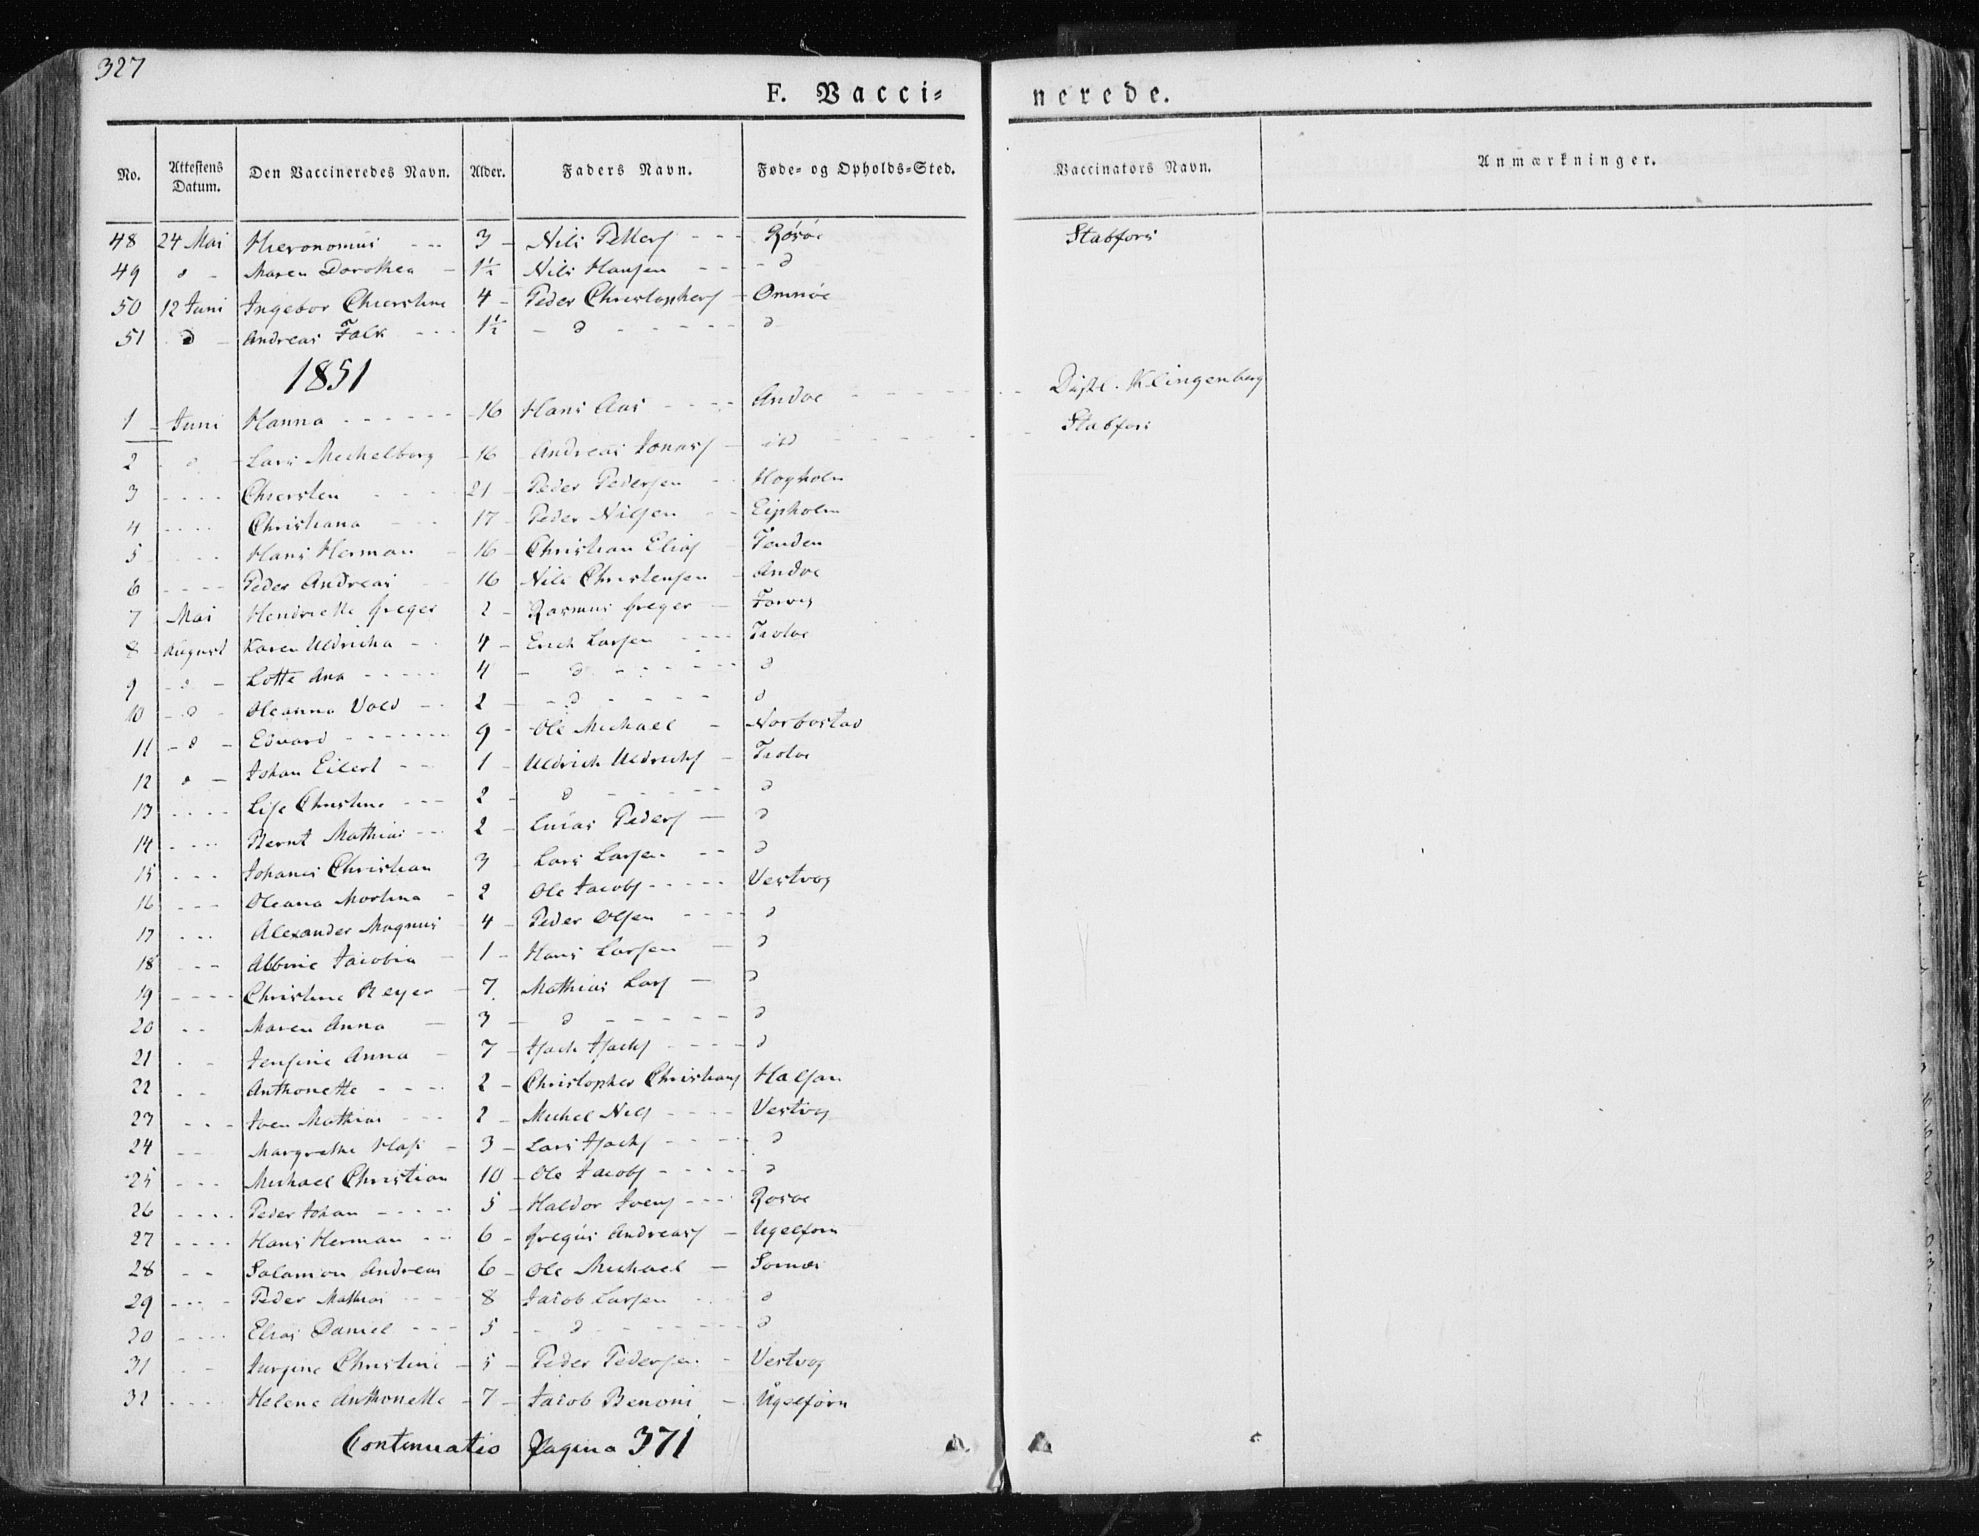 327
F. Vacci= nerede.
No. Attestens Datum. Den Vaccineredes Navn. Alder. Faders Navn. Føde- og Opholds-Sted. Vaccinators Navn. Anmærkninger.
48 24 Mai Hieronomus - - - 3 - Nils Petters - - - Røsøe Stabfors
49 d - Maren Dorothea - 1½ Nils Hansen - - - d
50 12 Juni Ingebor Chierstine 4 - Peder Christophers - Omnøe
51 d - Andreas Falk - - - 1½ - d - - - - - d
1851
1 - Juni Hanna - - - - - 16 Hans Aas - - - - Andoe - - - - - Distl. Klingenberg
2 d - Lars Mechelborg - 16 Andreas Jonas - itd - - - - - Stabfors
3 - - - - Chiersten - - - - 21 - Peder Pedersen - - Hogholm
4 - - - - Christiana - - - 17 - Peder Nilsen - - Eipholm
5 - - - Hans Herman - 16 - Christian Elias - Tenden
6 - - - - Peder Andreas - - 16 Nils Christensen - Andoe
7 Mai Hendriette Greger 2 - Rasmus Greger - Forvig
8 August Karen Uldricha - - 4 - Erich Larsen - - - - Troloe
9 - d - Lotte Ana - - - - - 4 - d - - - - - d
10 - d - Oleanna Vold - - 2 - - d - - - - - d
11 - d - Edvard - - - - - - - 9 - Ole Michael - Norbostad
12 d - Johan Eilert - - 1 - Uldrich Uldrichs - Troloe
13 - - - - Lise Christine - - - 2 - d - - - - - - d
14 - - - - Bernt Mathias - - - 2 - Lucas Peders - d
15 - - - Johanes Christian 3 - Lars Larsen - - d
16 - - - Oleana Martina - 2 Ole Jacobs - - - - - Vestvog
17 - - - Alexander Magnus 4 - Peder Olsen - - - - d
18 - - - Albine Jacobia - 1 - Hans Larsen - d
19 - - - - Christine Meyer - 7 - Mathias Lars - d
20 - - Maren Anna - 3 - d - - - - - - d
21 - - Jensine Anna - 7 - Isach Isachs - - - - d
22 - - Anthonette - - - - 2 - Christopher Christians Halsan
23 - - - Iven Mathias - - - 2 - Michel Nils - - - - Vestvog
24 - - Margrethe - 3 - Lars Isachs - - - - - d
25 - - - Michael Christian 10 - Ole Jacobs - - - - - d
26 - - - - Peder Johan - - - - - 5 - Haldor Ivens - - - - Rosoe
27 - - - - Hans Herman - - - 6 - Gregus Andreas - Ugelforn
28 - - Salamon Andreas 6 - Ole Michael - Sornes
29 - - - - Peder Mathias - - - 8 Jacob Larsen - - - d
30 - - - - Elias Daniel - - - 5 - - d - - - - - - d
31 - - Jurgine Christine - 5 - Peder Pedersen - Vestvog
32 - - - - Helene Anthonette - 7 - Jacob Benoni - Ugelforn
Continuatio Pagina 371